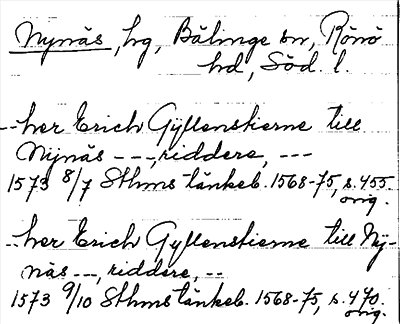 Nynäs, hg, Bälinge sn, Rönö
hd, Söd. l.
--her Erich Gyllenstierne till
Nÿnäs ---, riddere, ---
1573 8/7 Sthms tänkeb. 1568-75, s. 455
orig.
--her Erich Gyllenstierne till Nÿ-
näs --, riddere, --
1573 9/10 Sthms tänkeb. 1568-75, s. 470.
orig.